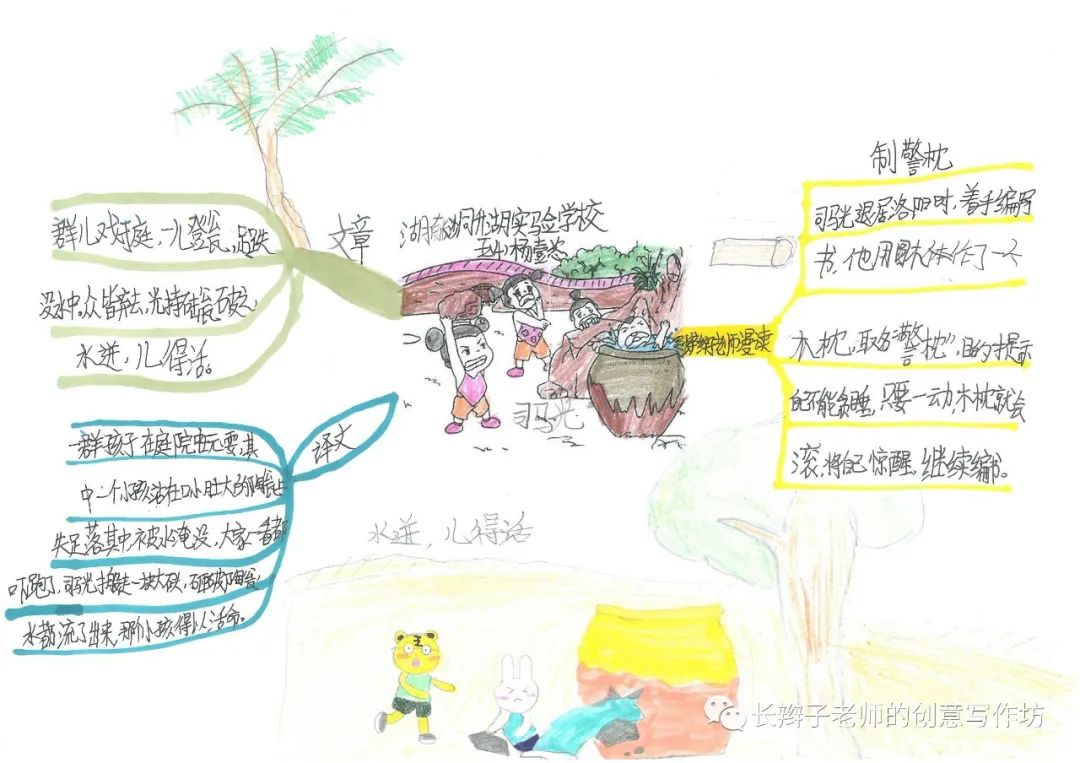 文章
群儿戏于庭，一儿登瓮，足跌
没水中。众皆弃去，光持石击瓮破之，
水迸，儿得活。
译文
一群孩子在庭院中玩耍，其
中一个小孩站在口小肚大的陶瓮上
失足落其中被水淹没，大家一看都
吓跑了，司马光搬起一块大石头，砸破陶瓮，
水都流了出来，那小孩得以活命。
实验学校
司马光
水迸，儿得活
制警枕
司马光退居洛阳时，着手编写
书，他用圆木体作了一个
木枕，取名"警枕"，目的提示
自己不能贪睡，只要一动，木枕就会
滚，将自己惊醒，继续编书。
长辫子老师的创意写作坊